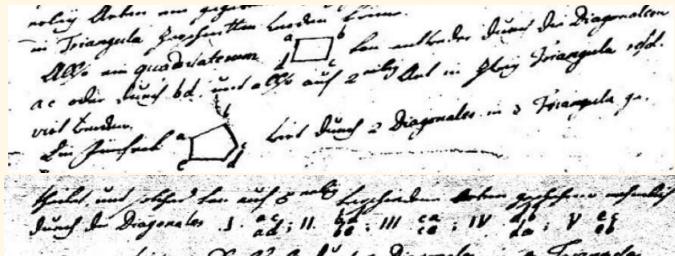 in Triangula zerschnitten werden könne.
Also ein quadrilaterum a b d c kan entweder durch die Diagonalem
ac oder durch bd. und also auf 2erley Art in zwey Triangula resol-
virt werden.
Ein Fünfeck a b c d e wird durch 2 Diagonales in 3 Triangula zer-
theilet, und solches kan auf 5erley verschiedene Arten geschehen nehmlich
durch die Diagonales I. ac ad ; II. bd be ; III ca ce ; IV db da ; V ec eb